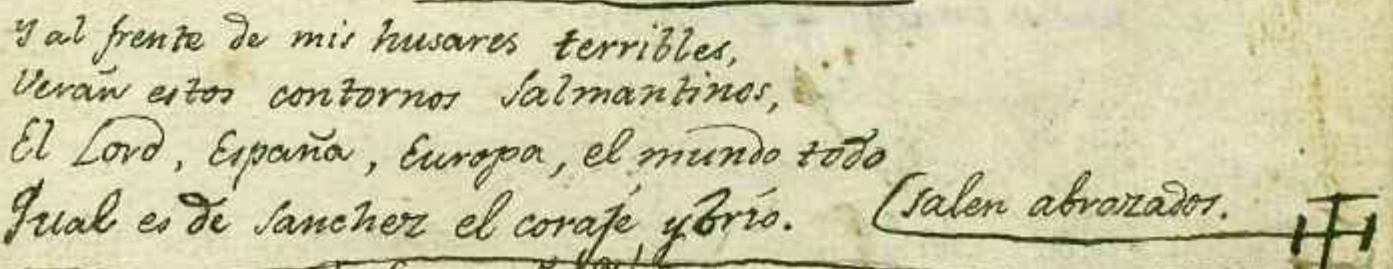 y al frente de mis husares terribles,
Verán estos contornos Salmantinos,
El Lord, España, Europa, el mundo todo
Qual es de Sanchez el coraje, y brío. (Salen abrazados.